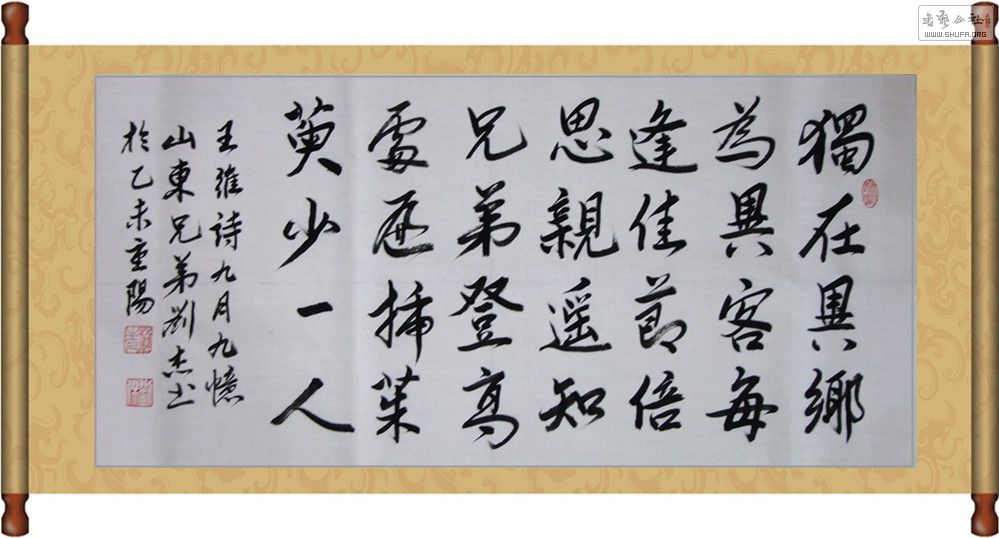 獨在異鄉
為異客每
逢佳節倍
思親遥知
兄弟登高
處遍插茱
萸少一人
王維詩九月九憶
山東兄弟劉杰书
於乙未重陽
書藝公社
WWW.SHUFA.ORG